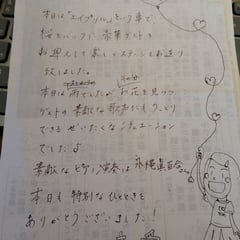 本日は"エイプリル"という事で、
桜をバックに、豪華ゲストを
お迎えして楽しいステージをお送り
致しました。
本日は雨でしたが お花を見つつ
ゲストの素敵な歌声にもうっとり
できるぜいたくなシチュエーション
でしたよ
素敵なピアノ演奏は
本日も特別なひとときを
ありがとうございました!